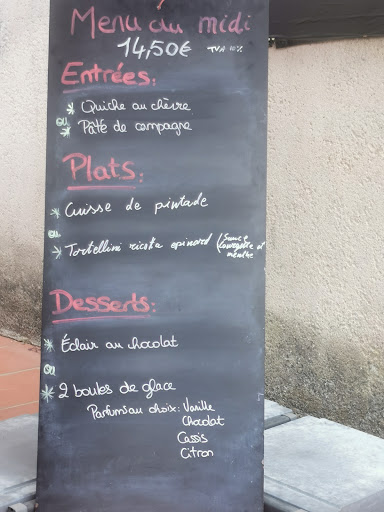 Menu du midi
14,50€ TVA 10%
Entrées:
* Quiche au chèvre
ou
* Pâté de campagne
Plats:
* Cuisse de pintade
ou
* Tortellini ricotta epinard (Sauce courgette et menthe
Desserts:
* Éclair au chocolat
ou
* 2 boules de glace
Parfum au choix: Vanille
Chocolat
Cassis
Citron